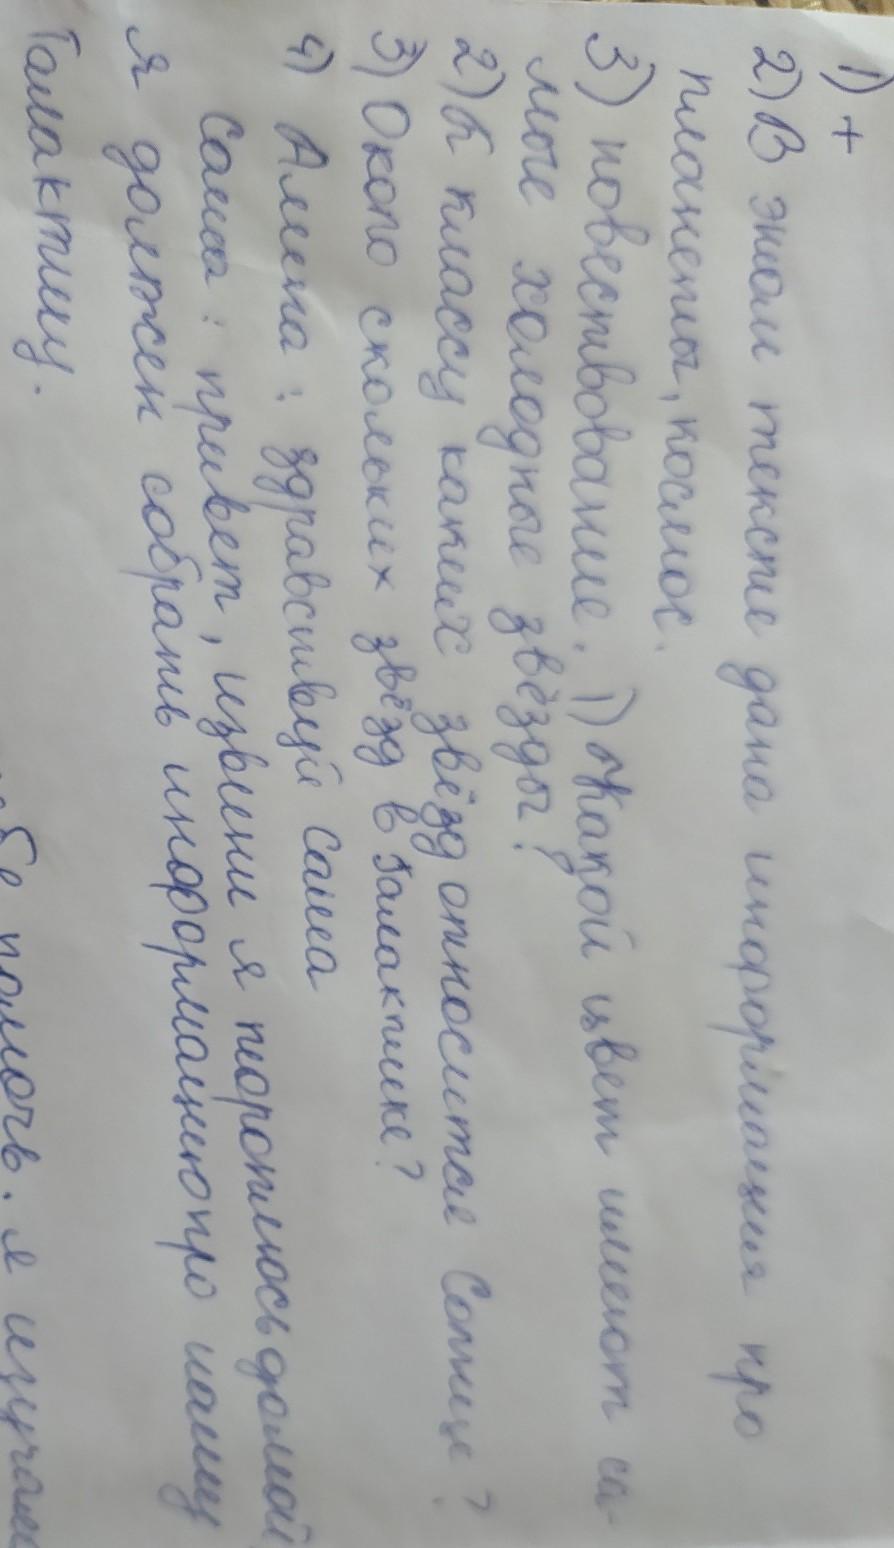 1) +
2) В этом тексте дана информация про
планеты, космос.
3) повествование. 1) Какой цвет имеют са-
мые холодные звёзды?
2) К классу каких звёзд относится Солнце?
3) Около скольких звёзд в Галактике?
4) Алина: здравствуй Саша
Саша: привет, извени я тороплюсь домой,
я должен собрать информацию про нашу
Галактику.
помочь. я изучала